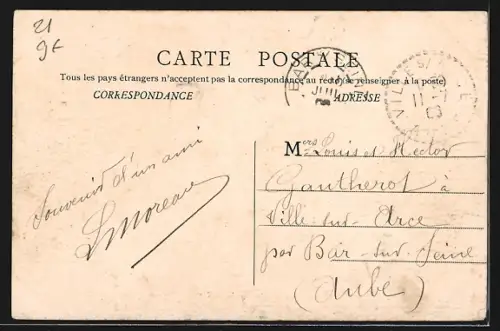 21
9€
CARTE POSTALE
Tous les pays étrangers n'acceptent pas la correspondance au recto (se renseigner à la poste)
CORRESPONDANCE
ADRESSE
Souvenir d'un ami
L Moreau
Mers Louis et Hector
Gautherot à
Ville-sur-Arce
par Bar-sur-Seine
(Aube)
11-7
03